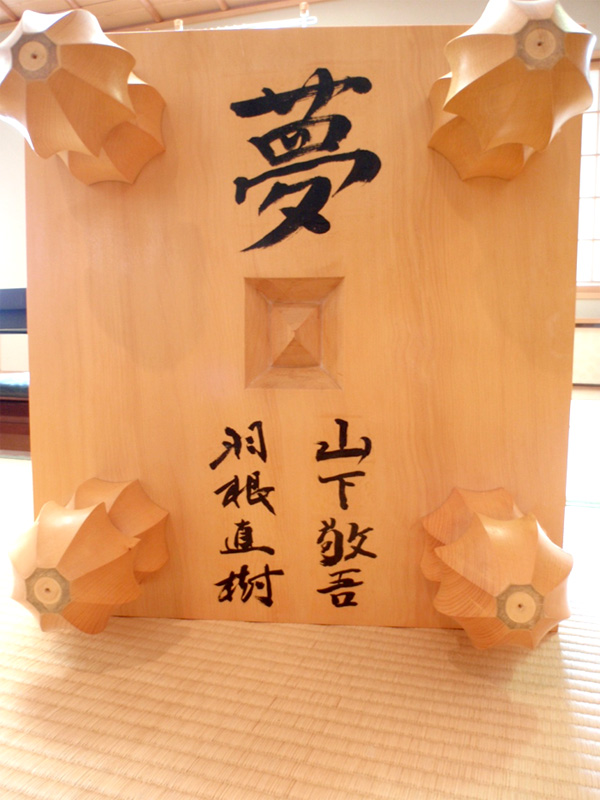 夢
山下敬吾
羽根直樹